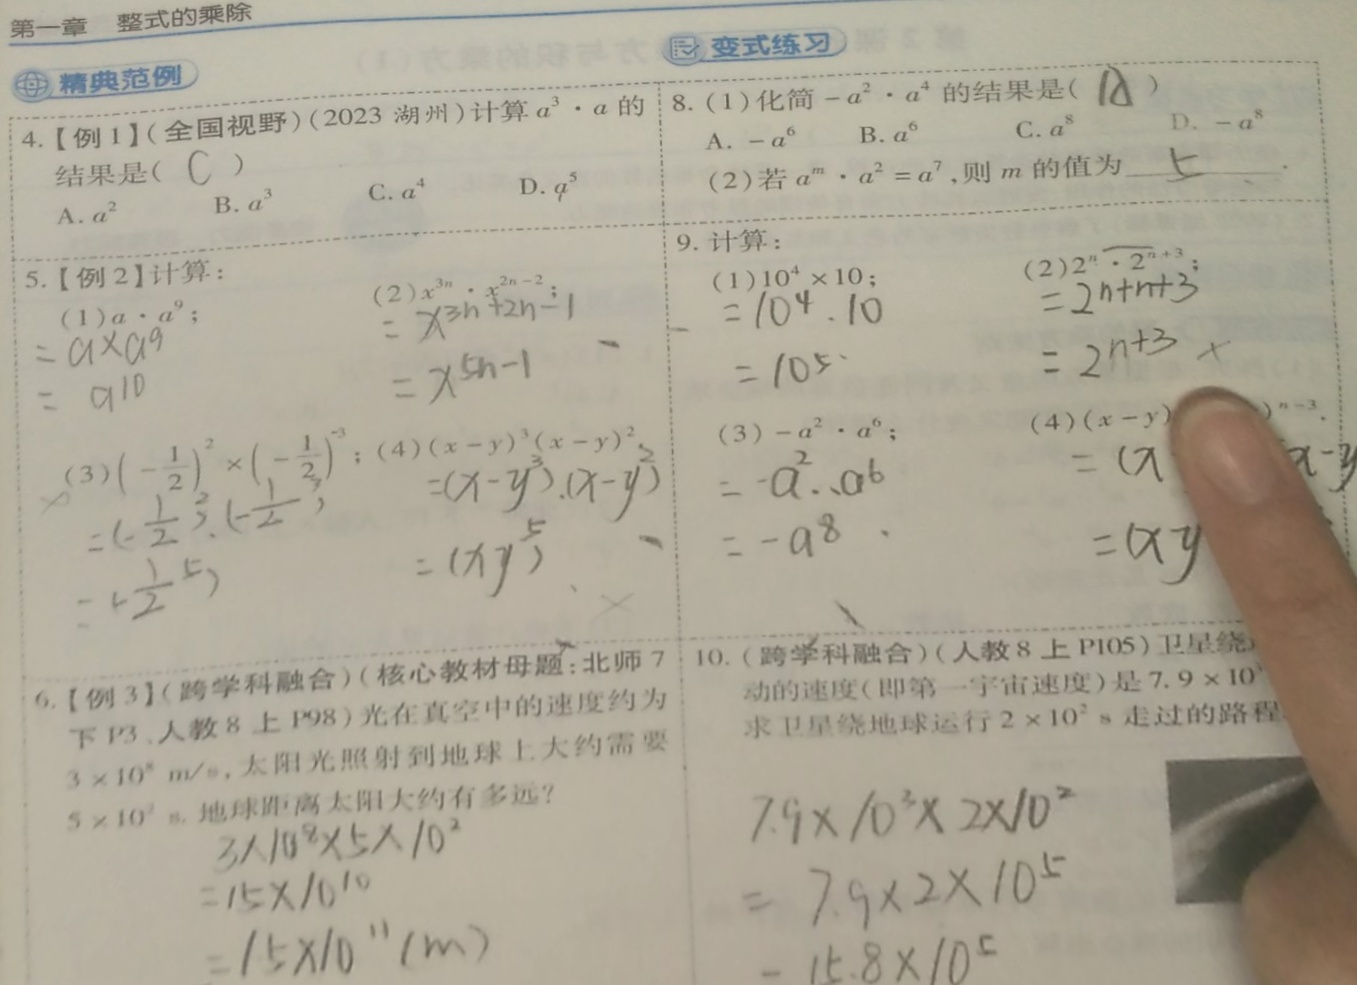 第一章 整式的乘除
精典范例
4.【例1】(全国视野)(2023 湖州)计算 a³·a 的
结果是( C )
A. a² B. a³ C. a⁴ D. a⁵
5.【例2】计算:
(1) a·a⁹;
= a×a⁹
= a¹⁰
(2) x³ⁿ·x²ⁿ⁻²;
= x³ⁿ⁺²ⁿ⁻¹
= x⁵ⁿ⁻¹
(3)(-1/2)²×(-1/2)³;
=(-1/2)²·(-1/2)³
=(-1/2)⁵
(4)(x-y)³(x-y)².
=(x-y)³·(x-y)²
=(xy)⁵
6.【例3】(跨学科融合)(核心教材母题:北师7
下 P3、人教8上 P98)光在真空中的速度约为
3×10⁸ m/s,太阳光照射到地球上大约需要
5×10² s. 地球距离太阳大约有多远?
3×10⁸×5×10²
=15×10¹⁰
=15×10¹¹(m)
变式练习
8.(1)化简 -a²·a⁴ 的结果是( )
A. -a⁶ B. a⁶ C. a⁸ D. -a⁸
(2)若 aᵐ·a²=a⁷,则 m 的值为 5 .
9. 计算:
(1)10⁴×10;
=10⁴·10
=10⁵
(2)2ⁿ·2ⁿ⁺³;
=2ⁿ⁺ⁿ⁺³
=2ⁿ⁺³ ×
(3)-a²·a⁶;
=-a²·a⁶
=-a⁸
(4)(x-y) )ⁿ⁻³.
=(x x-y
=(xy
10.(跨学科融合)(人教8上 P105)卫星绕
动的速度(即第一宇宙速度)是 7.9×10³
求卫星绕地球运行 2×10² s 走过的路程
7.9×10³×2×10²
=7.9×2×10⁵
=15.8×10⁵